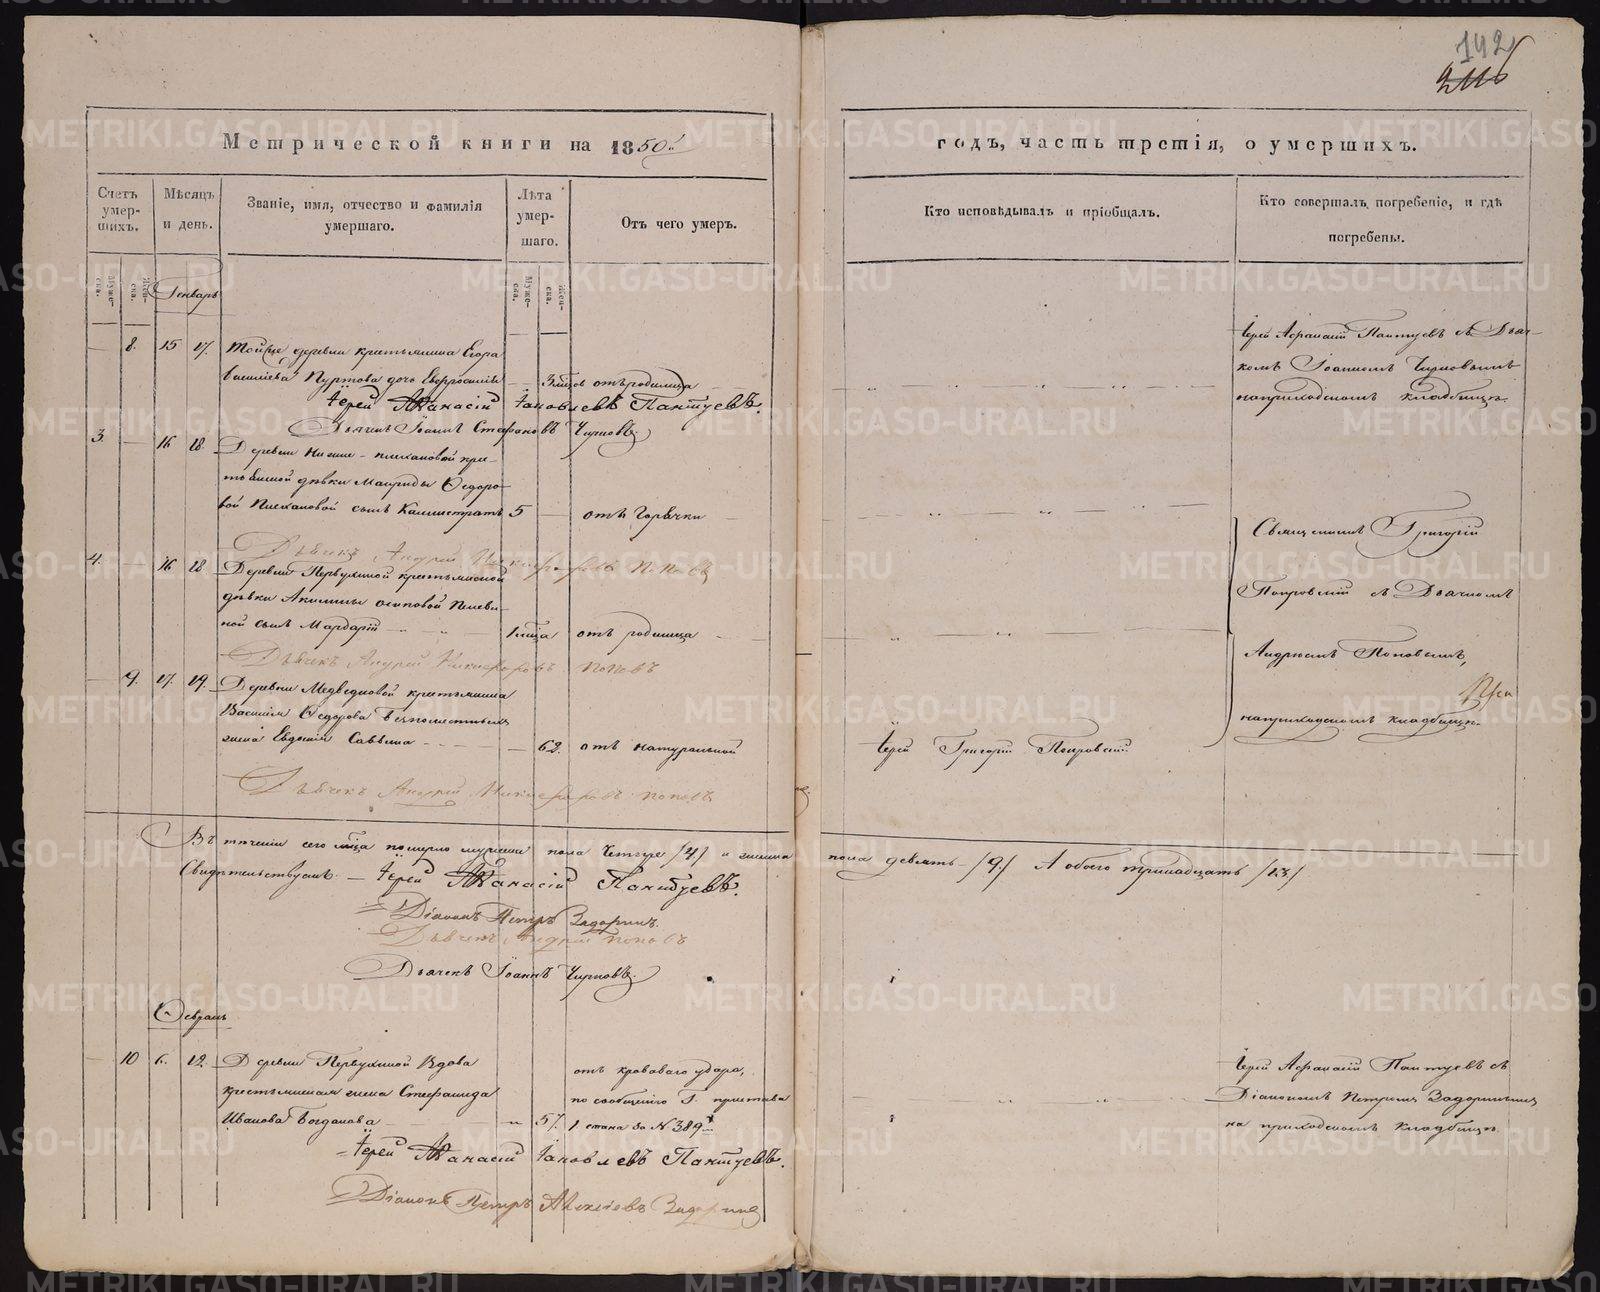 142
Метрической книги на 1850й
годъ, часть третія, о умершихъ.
Счетъ умер-шихъ.
Мѣсяцъ и день.
Званіе, имя, отчество и фамилія умершаго.
Лѣта умер-шаго.
Отъ чего умеръ.
Кто исповѣдывалъ и пріобщалъ.
Кто совершалъ погребеніе, и гдѣ погребены.
Муже-ска.
Жен-ска.
Муже-ска.
Жен-ска.
Генварь
8. 15 17.
деревни крестьянина Егора
Васильева Пуртова дочь Евфросинія
отъ родимца
Іерей Аѳанасій Іаковлевъ Пантуевъ.
Дьячекъ Іоаннъ Стефановъ Чирковъ.
Іерей Афанасій Пантуевъ съ Дьяч-
комъ Іоанномъ Чирковымъ
на приходскомъ кладбищѣ.
3. 16 18.
Деревни Нижне-
дѣвки Мавриды Ѳедоро-
вой сынъ Каллистратъ 5 отъ Горячки
Дьячекъ Андрей Никифоровъ Поповъ
4. 16 18.
Деревни Первухиной крестьянской
дѣвки Акилины Осиповой
сынъ Мардарій 1 мѣца отъ родимца
Дьячекъ Андрей Никифоровъ Поповъ
9. 17. 19.
Деревни Медвѣдковой крестьянина
Василія Ѳедорова
жена Евдокія Саввина 62. отъ натуральной
Дьячекъ Андрей Никифоровъ Поповъ
Іерей Григорій Покровскій
Священникъ Григорій
Покровскій съ Дьячкомъ
Андреемъ Поповымъ,
на приходскомъ кладбищѣ.
Въ теченіи сего мѣца померло мужеска пола Четыре /4/ и женска пола девять /9/ А обоего тринадцать /13/
Свидѣтельствуемъ. Іерей Аѳанасій Пантуевъ.
Діаконъ Петръ Задоринъ.
Дьячекъ Андрей Поповъ
Дьячекъ Іоаннъ Чирковъ.
Февраль
10 6. 12.
Деревни Первухиной Вдова
крестьянская жена Стефанида
Иванова Богданова 57.
отъ кроваваго удара,
по сообщенію Г. пристава
1 стана за № 389м
Іерей Аѳанасій Іаковлевъ Пантуевъ.
Діаконъ Петръ Алексіевъ Задоринъ
Іерей Афанасій Пантуевъ съ
Діакономъ Петромъ Задоринымъ
на приходскомъ кладбищѣ.
METRIKI.GASO-URAL.RU